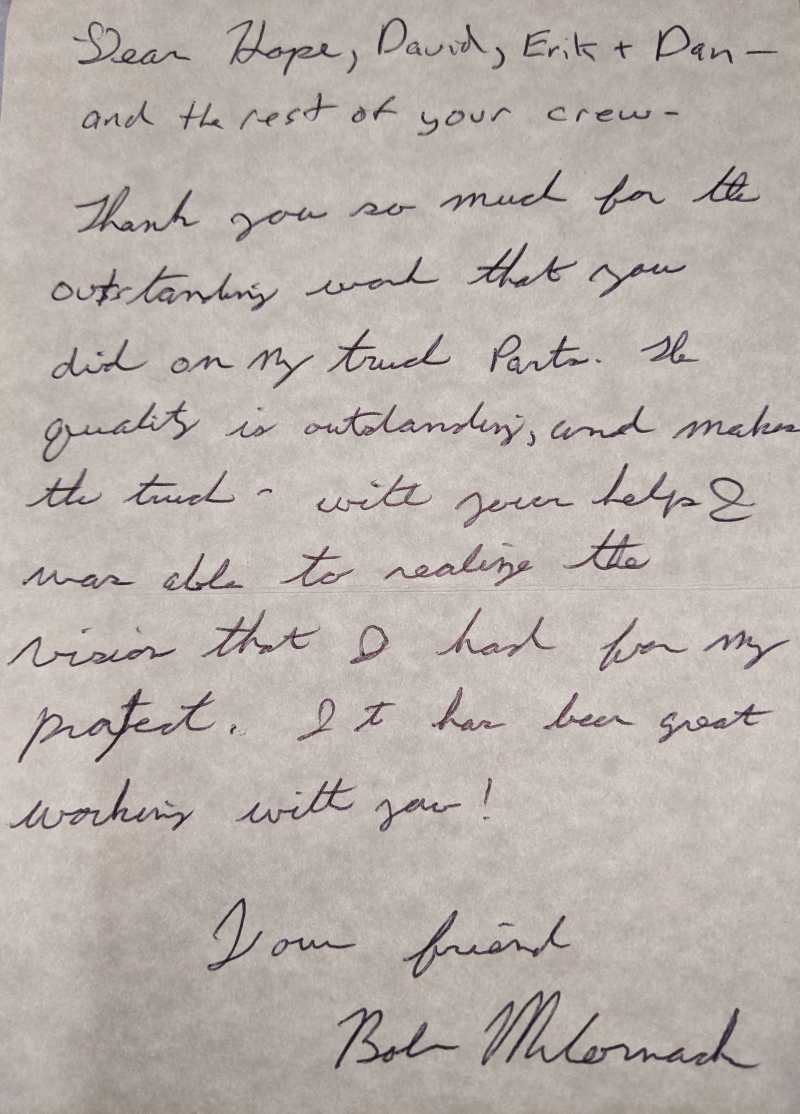 Dear Hope, David, Erik + Dan —
and the rest of your crew -
Thank you so much for the
outstanding work that you
did on my truck Parts. The
quality is outstanding, and makes
the truck - with your help I
was able to realize the
vision that I had for my
project. It has been great
working with you!
Your friend
Bob McCormack